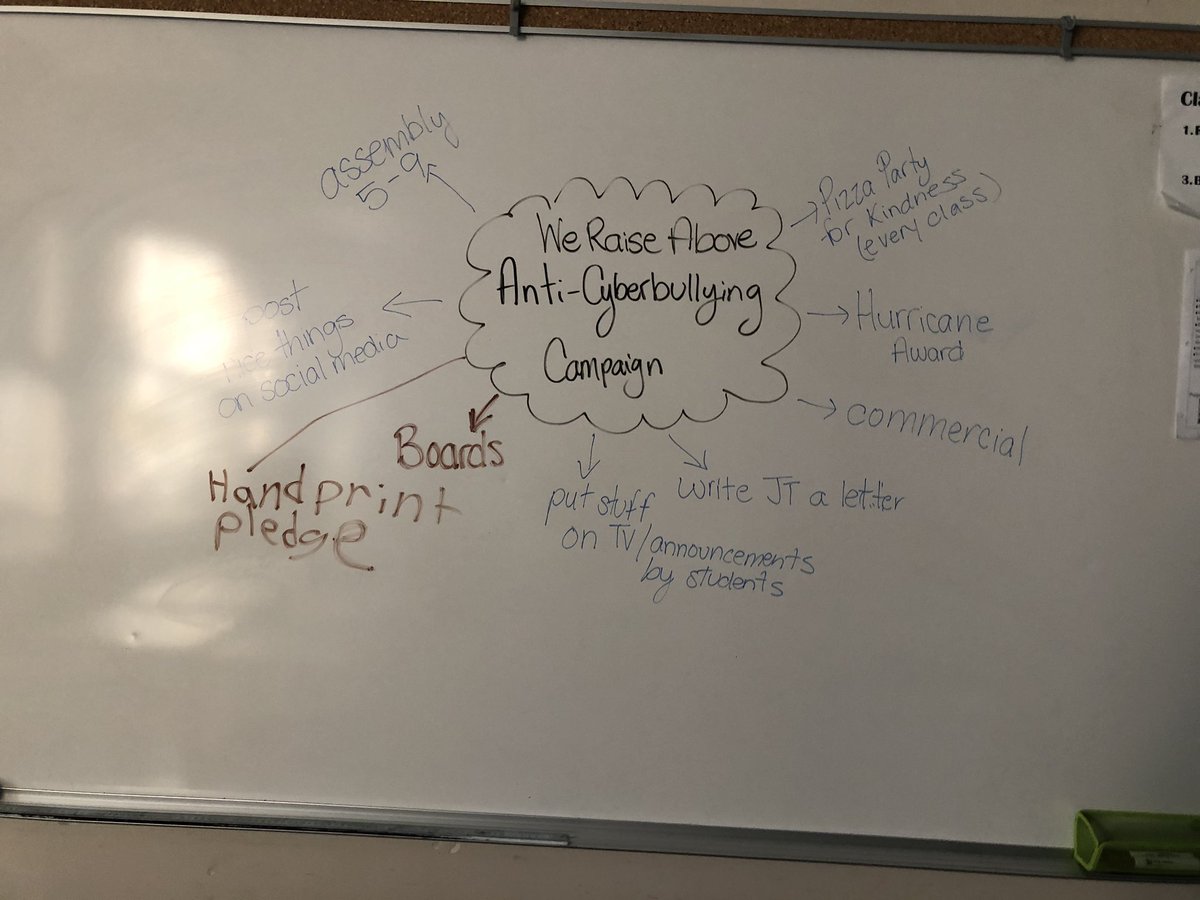 We Raise Above
Anti-Cyberbullying
Campaign
assembly
5-9
Pizza Party
for Kindness
(every class)
Hurricane
Award
commercial
write JT a letter
put stuff
on TV/announcements
by students
Boards
Handprint
pledge
post
nice things
on social media
1.
3.B